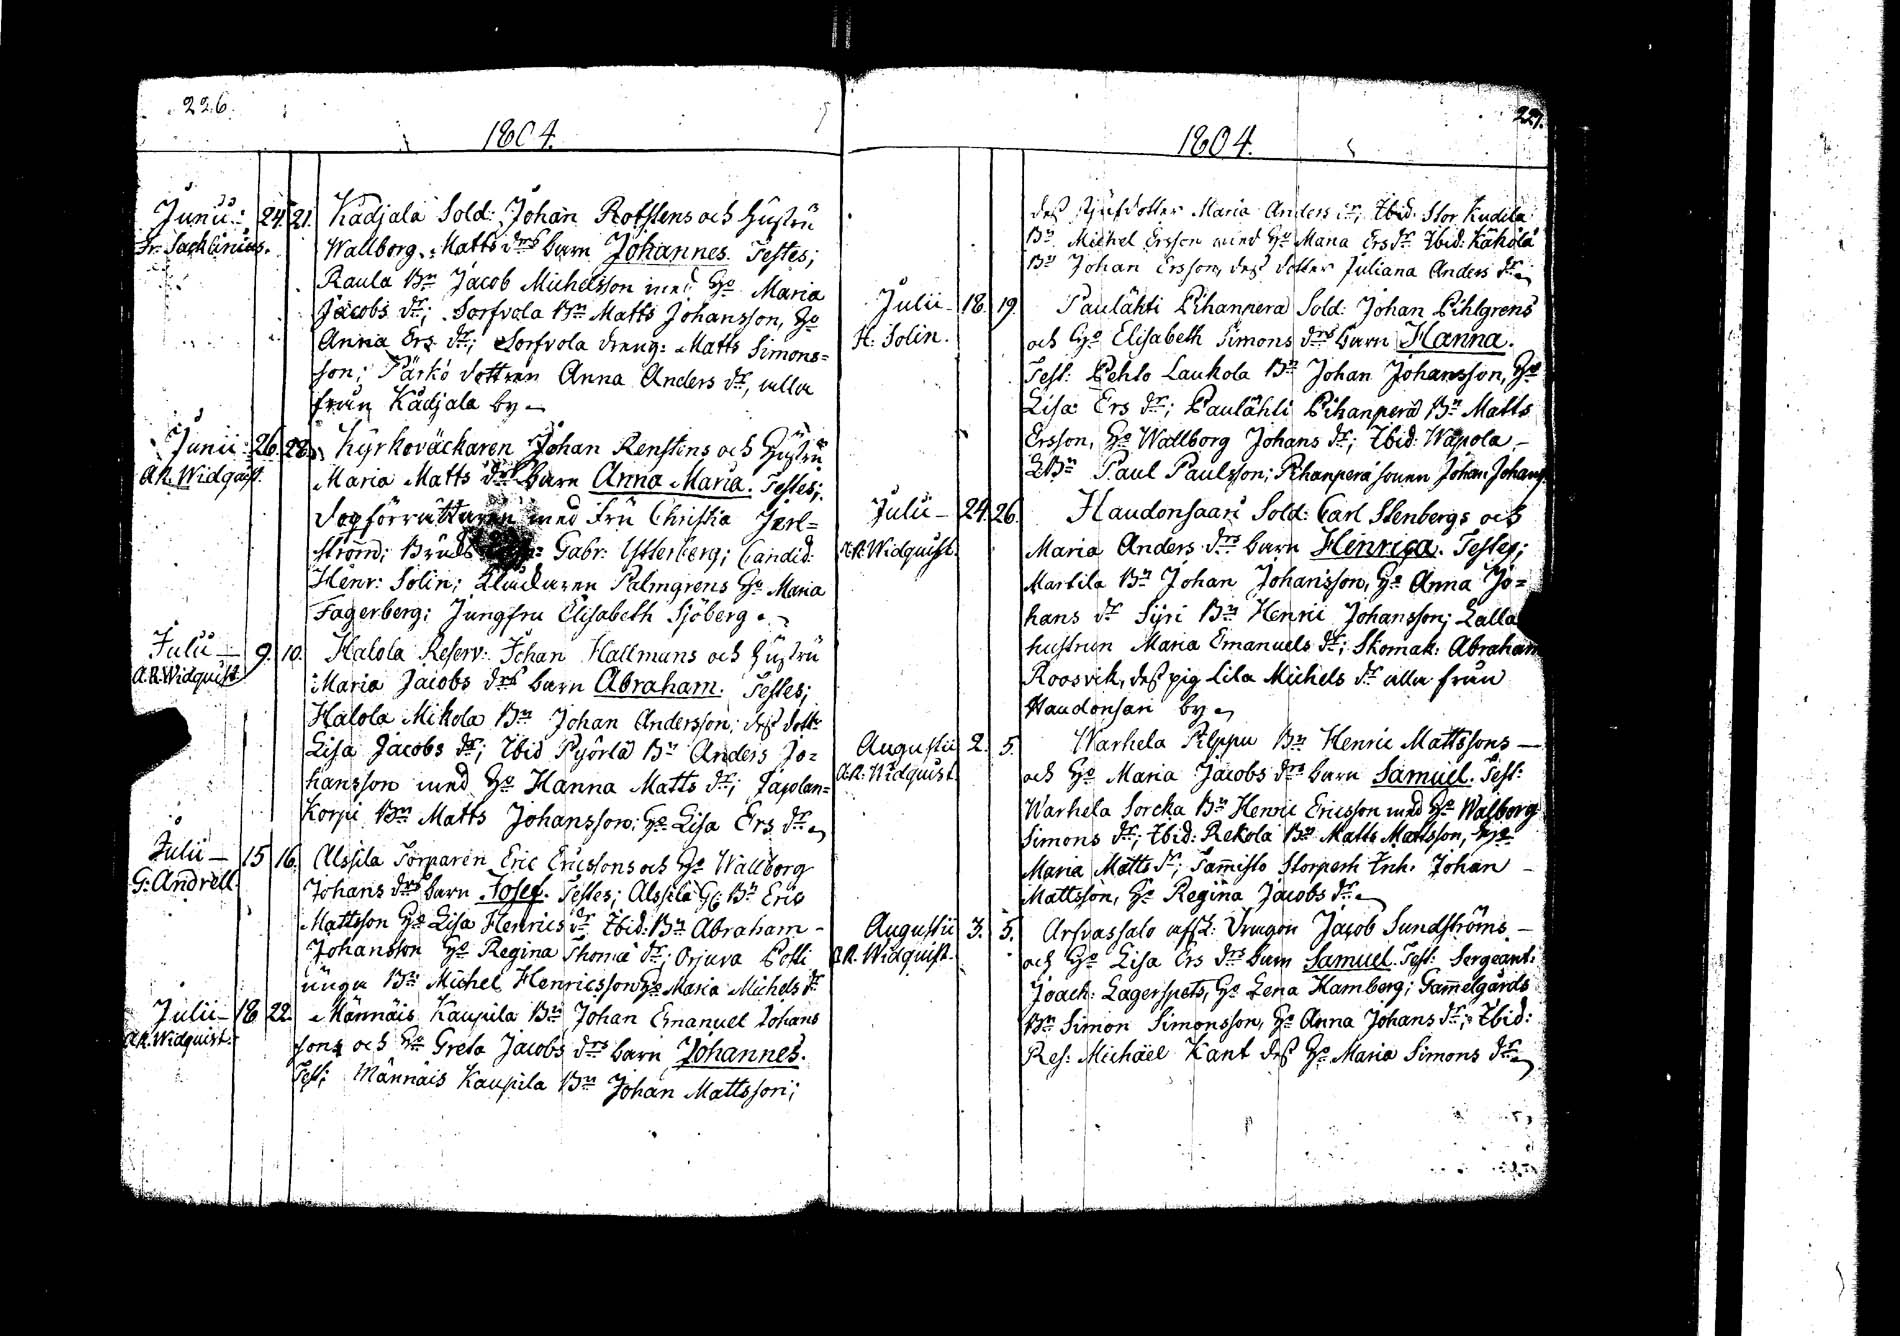 226.
1804.
Junii: 24. 21. Kädjala Sold: Johan Rotstens och Hustru
Fr: Sachlinius. Wallborg Matts drs barn Johannes. Testes;
Raula Bn Jacob Michelsson med Ho Maria
Jacobs dr; Sorfvola Bn Matts Johansson, Ho
Anna Ers dr; Sorfvola dräng: Matts Simons=
son; Pärkö dottren Anna Anders dr, alla
från Kädjala by
Junii: 26. 28. Kyrkoväckaren Johan Renstens och Hustru
A.R. Widquist. Maria Matts drs Barn Anna Maria. Testes;
Sogförrättaren med Fru Christia Jerl=
ström; Bruks Gabr: Ytterberg; Candid:
Henr: Solin; Klockaren Palmgrens Ho Maria
Fagerberg; Jungfru Elisabeth Sjöberg.
Julii 9. 10. Halola Reserv: Johan Hallmans och Hustru
A.R. Widquist Maria Jacobs drs barn Abraham. Testes;
Halola Mikola Bn Johan Andersson; dess dottr
Lisa Jacobs dr; Ibid Pyörlä Bn Anders Jo-
hansson med Ho Hanna Matts dr; Tapolan=
Korpi Bn Matts Johansson; Ho Lisa Ers dr
Julii 15 16. Alssila Torparen Eric Ericssons och Ho Wallborg
G: Andrell Johans drs barn Josef. Testes; Alssila Bn Eric
Mattsson Ho Lisa Henrics dr Ibid: Bn Abraham
Johansson Ho Regina Thomæ dr; Orjura Potti
unga Bn Michel Henricsson Ho Maria Michels dr
Julii 18 22. Männäis Kaupila Bn Johan Emanuel Johans
A.R. Widquist. sons och Ho Greta Jacobs drs barn Johannes.
Test; Männäis Kaupila Bn Johan Mattsson;
227.
1804.
dess styfdotter Maria Anders dr; Ibid: Stor Kudila
Bn Michel Ersson med Ho Maria Ers dr Ibid: Kähölä
Bn Johan Ersson, dess dotter Juliana Anders dr
Julii 18. 19. Paulähti Pihanperä Sold: Johan Pihlgrens
H: Solin. och Ho Elisabeth Simons drs barn Hanna.
Test: Pehto Laukola Bn Johan Johansson, Ho
Lisa Ers dr; Paulähti Pihanperä Bn Matts
Ersson, Ho Wallborg Johans dr; Ibid: Wäpola
Bn Paul Paulsson; Pihanperä sonen Johan Johans
Julii 24 26. Haudonsaari Sold: Carl Stenbergs och
A.R. Widquist. Maria Anders drs barn Henrica. Testes;
Martila Bn Johan Johansson, Ho Anna Jo=
hans dr Syri Bn Henric Johansson; Lalla
hustrun Maria Emanuels dr; Skomak: Abraham
Roosvik, dess pig Lisa Michels dr alla från
Haudonsari by
Augustii 2. 5. Warhela Pilppu Bn Henric Mattssons
A.R. Widquist. och Ho Maria Jacobs drs barn Samuel. Test:
Warhela Sorcka Bn Henric Ericsson med Ho Walborg
Simons dr; Ibid: Rekola Bn Matts Mattsson, Ho
Maria Matts dr; Tammisto Storpert Inh: Johan
Mattsson, Ho Regina Jacobs dr
Augustii 3. 5. Arfvassalo afsk: Dragon Jacob Sundströms
A.R. Widquist. och Ho Lisa Ers drs barn Samuel. Test: Sergeant:
Joach: Lagerspets, Ho Lena Hamberg; Gammelgårds
Bn Simon Simonsson, Ho Anna Johans dr; Ibid:
Res: Michäel Kant dess Ho Maria Simons dr